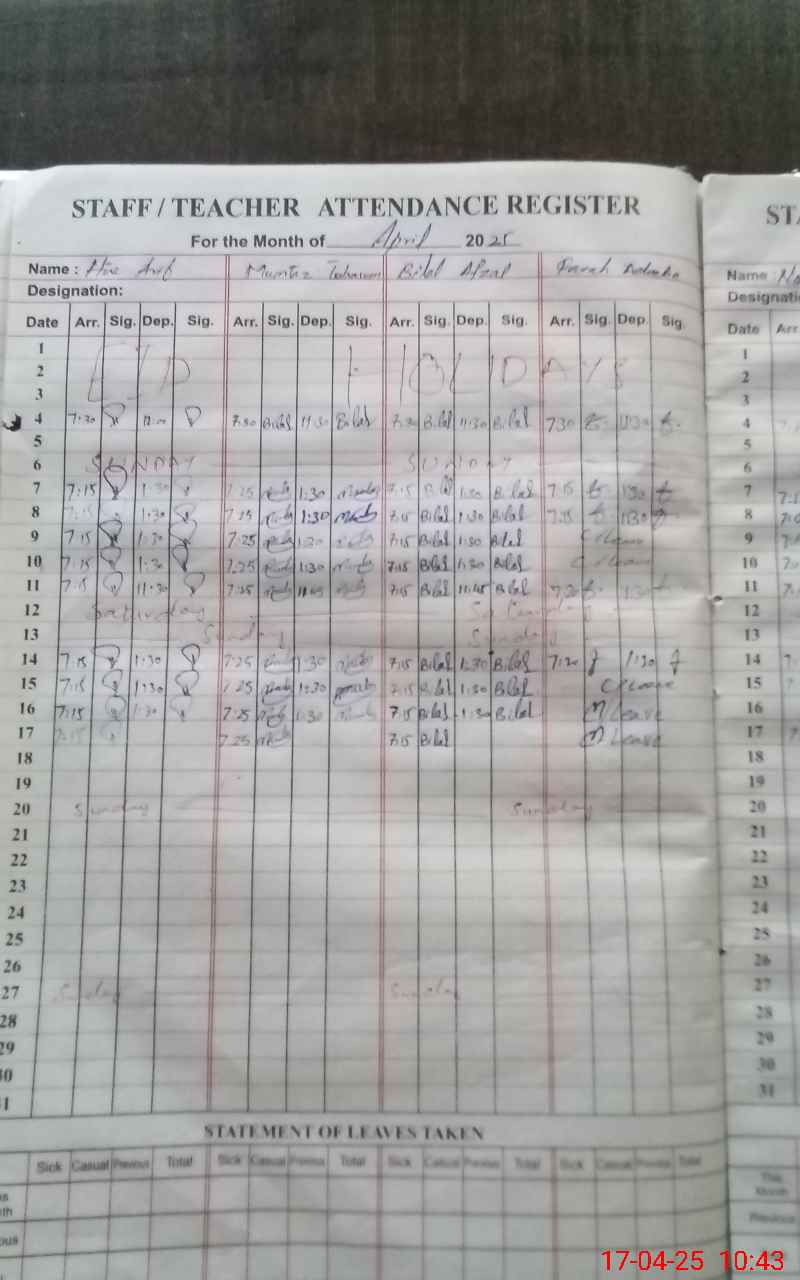 STAFF / TEACHER ATTENDANCE REGISTER
For the Month of April 2025
Name : Bilal Afzal Farah
Designation:
Date Arr. Sig. Dep. Sig. Arr. Sig. Dep. Sig. Arr. Sig. Dep. Sig. Arr. Sig. Dep. Sig.
1
2 EID HOLIDAYS
3
4 7:30 12:00 7:30 Bilal 11:30 Bilal 7:30 Bilal 11:30 Bilal 7:30 11:30
5
6 SUNDAY SUNDAY
7 7:15 1:30 7:25 1:30 7:15 Bilal 1:30 Bilal 7:15 1:30
8 7:15 1:30 7:25 1:30 7:15 Bilal 1:30 Bilal 7:15 1:30
9 7:15 1:30 7:25 1:30 7:15 Bilal 1:30 Bilal C/Leave
10 7:15 1:30 7:25 1:30 7:15 Bilal 1:30 Bilal C/Leave
11 7:15 11:30 7:25 7:15 Bilal 11:45 Bilal 7:20 1:30
12 Saturday Saturday
13 Sunday Sunday
14 7:15 1:30 7:25 1:30 7:15 Bilal 1:30 Bilal 7:20 1:30
15 7:15 1:30 7:25 1:30 7:15 Bilal 1:30 Bilal C/Leave
16 7:15 1:30 7:25 1:30 7:15 Bilal 1:30 Bilal M Leave
17 7:15 7:25 7:15 Bilal M Leave
18
19
20 Sunday Sunday
21
22
23
24
25
26
27 Sunday Sunday
28
29
30
31
STATEMENT OF LEAVES TAKEN
Sick Casual Previous Total Sick Casual Previous Total Sick Casual Previous Total Sick Casual Previous Total
ST
Name
Date Arr
1
2
3
4
5
6
7
8
9
10
11
12
13
14
15
16
17
18
19
20
21
22
23
24
25
26
27
28
29
30
31
This
Month
Previous
17-04-25 10:43